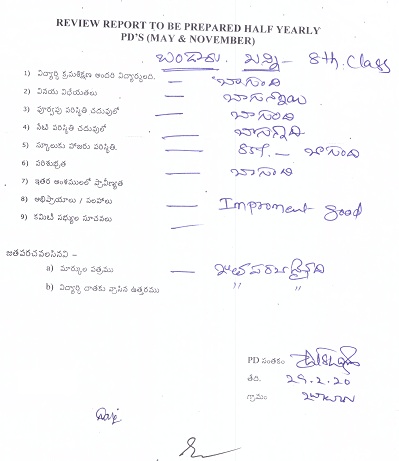 REVIEW REPORT TO BE PREPARED HALF YEARLY
PD'S (MAY & NOVEMBER)
బండారు బన్ని - 8th. Class
1) విద్యార్థి క్రమశిక్షణ అందరి విద్యార్థులది. — బాగుంది
2) వినయ విధేయతలు — బాగున్నాయి
3) పూర్వపు పరిస్థితి చదువులో — బాగుంది
4) నేటి పరిస్థితి చదువులో — బాగున్నది
5) స్కూలుకు హాజరు పరిస్థితి. — 85%. – బాగుంది
6) పరిశుభ్రత — బాగుంది
7) ఇతర అంశములలో ప్రావీణ్యత —
8) అభిప్రాయాలు / సలహాలు — Improment good
9) కమిటీ సభ్యుల సూచనలు —
జతపరచవలసినవి –
a) మార్కుల పత్రము — జతపరబడినది
b) విద్యార్థి దాతకు వ్రాసిన ఉత్తరము " "
PD సంతకం
తేది. 29.2.20
గ్రామం